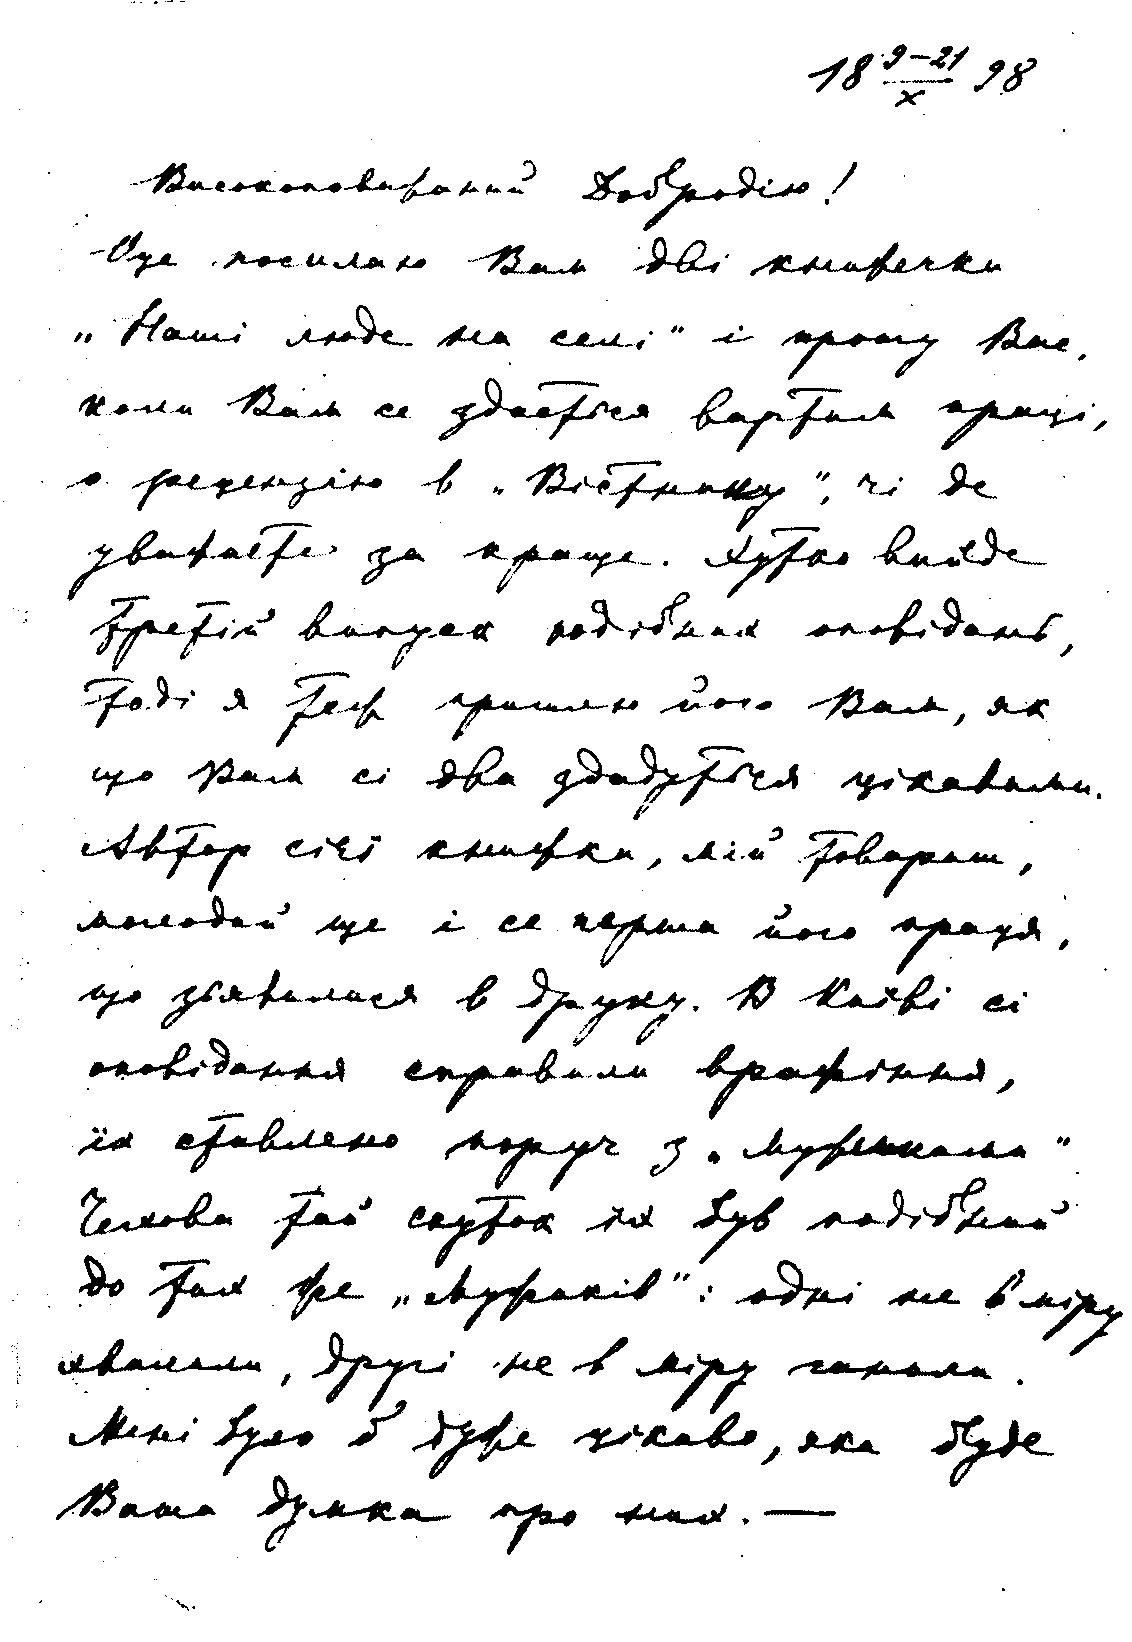 18 9–21/X 98
Високоповажаний Добродію!
Оце посилаю Вам дві книжечки
„Наші люде на селі" і прошу Вас,
коли Вам се здасться вартим праці,
о рецензію в „Вістнику", чі де
уважаєте за краще. Хутко вийде
третій випуск подібних оповідань,
тоді я теж пришлю його Вам, як
що Вам сі два здадуться цікавими.
Автор сієї книжки, мій товариш,
молодий ще і се перша його праця,
що зъявилася в друку. В Київі сі
оповідання справили враження,
їх ставлено поруч з „Мужиками"
Чехова тай скуток їх був подібний
до тих же „Мужиків": одні не в міру
хвалили, другі не в міру ганили.
Мені було б дуже цікаво, яка буде
Ваша думка про них. —